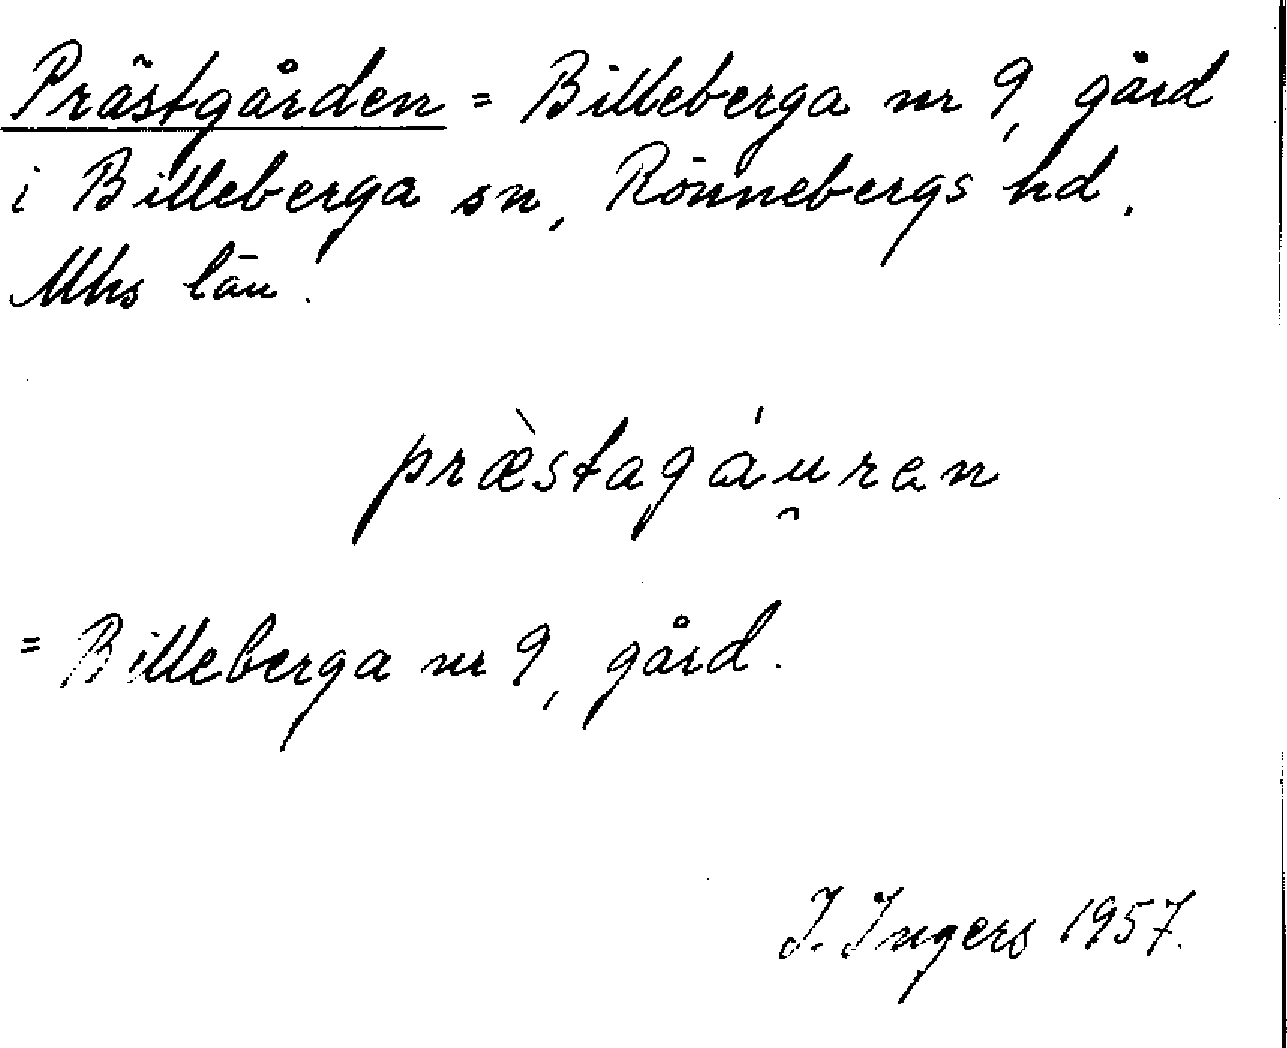 Prästgården = Billeberga nr 9, gård
i Billeberga sn, Rönnebergs hd,
Mhs län.
præ̀stagáu̯ran
= Billeberga nr 9, gård.
I. Ingers 1957.